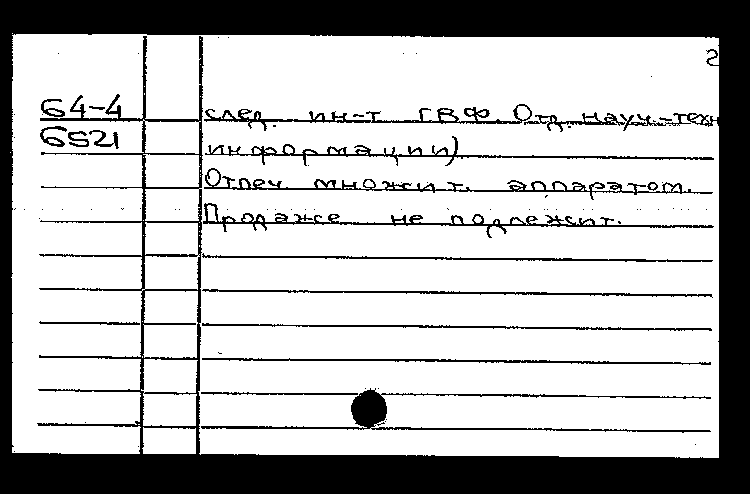 2
64-4 след. ин-т ГВФ. Отд. науч.-техн
6521 информации)
Отпеч множит. аппаратом.
Продаже не подлежит.